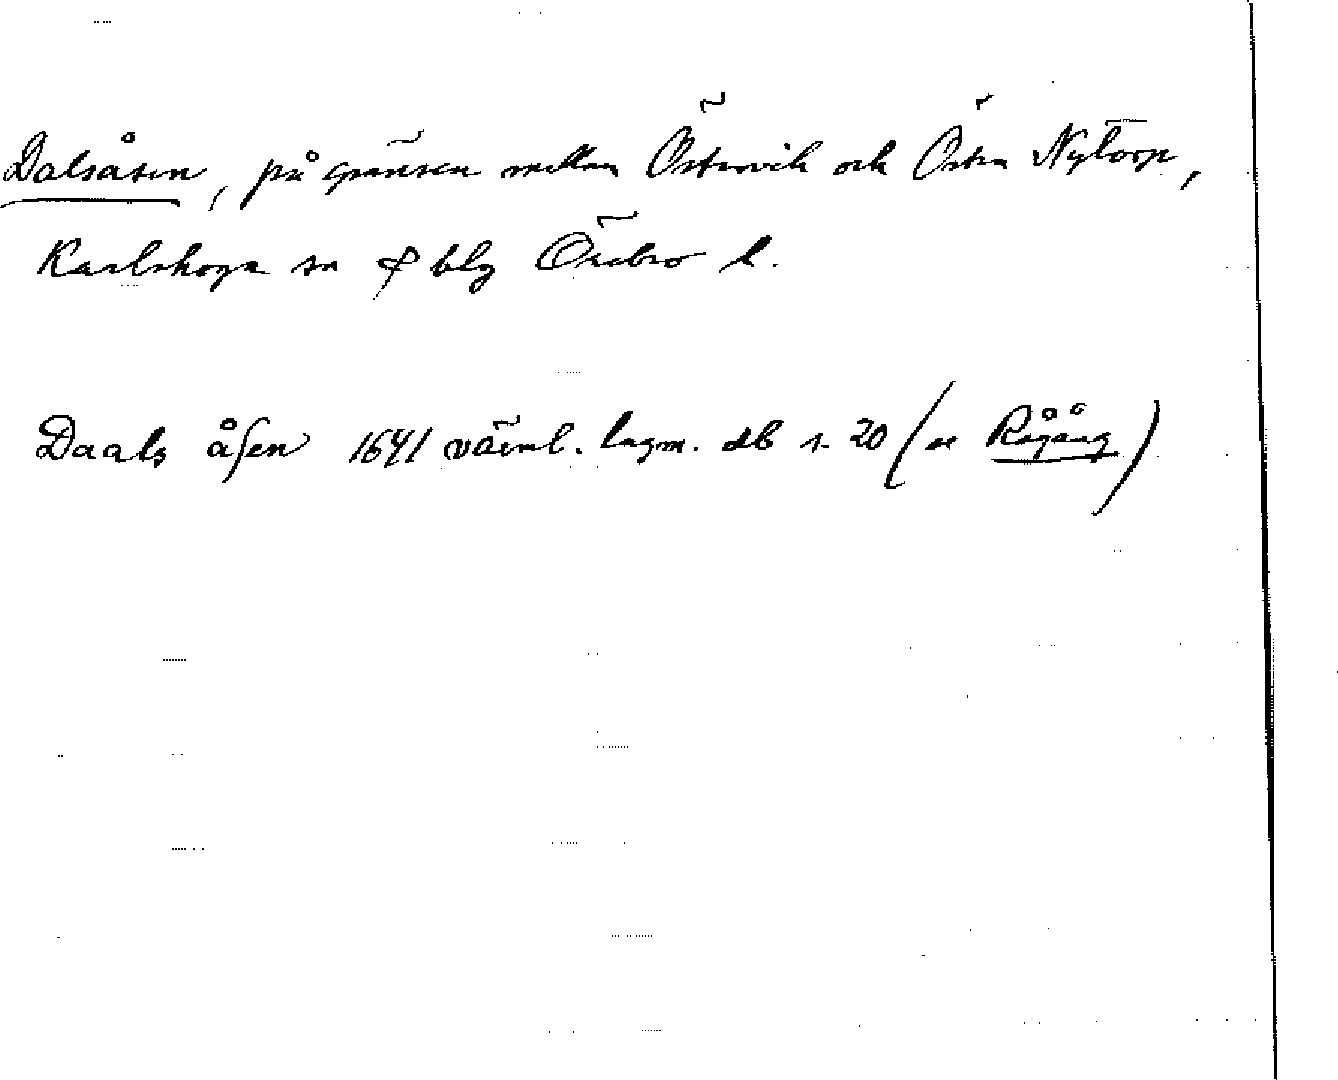 Dalsåsen, på gränsen mellan Östervik och Östra Nytorp,
Karlskoga sn & blg Örebro l.
Daals åsen 1641 värml. lagm. db s. 20 (se Rågång)